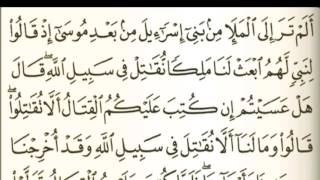 أَلَمْ تَرَ إِلَى ٱلْمَلَإِ مِنۢ بَنِىٓ إِسْرَٰٓءِيلَ مِنۢ بَعْدِ مُوسَىٰٓ إِذْ قَالُوا۟
لِنَبِىٍّ لَّهُمُ ٱبْعَثْ لَنَا مَلِكًا نُّقَٰتِلْ فِى سَبِيلِ ٱللَّهِ ۖ قَالَ
هَلْ عَسَيْتُمْ إِن كُتِبَ عَلَيْكُمُ ٱلْقِتَالُ أَلَّا تُقَٰتِلُوا۟ ۖ
قَالُوا۟ وَمَا لَنَآ أَلَّا نُقَٰتِلَ فِى سَبِيلِ ٱللَّهِ وَقَدْ أُخْرِجْنَا